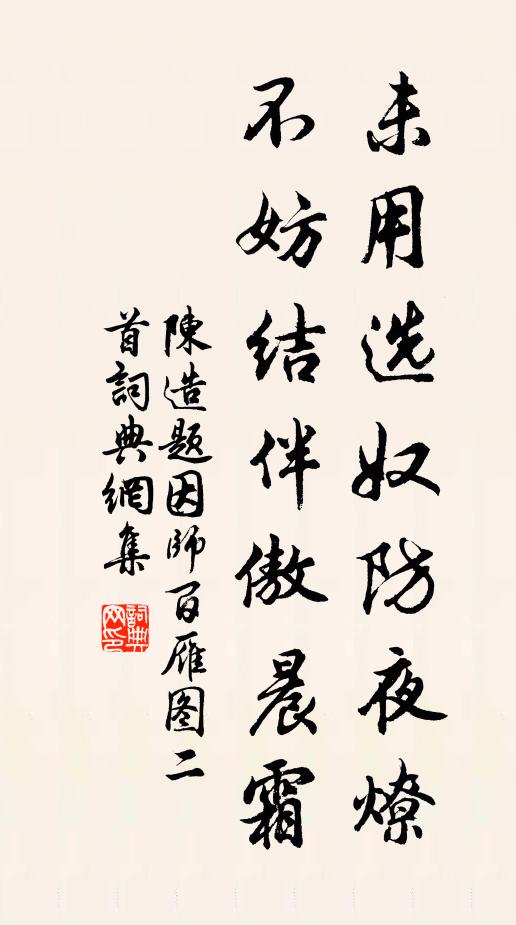 未用选奴防夜燎
不妨结伴傲晨霜
陳造題因師百雁图二
首詞典網集
詞典网印